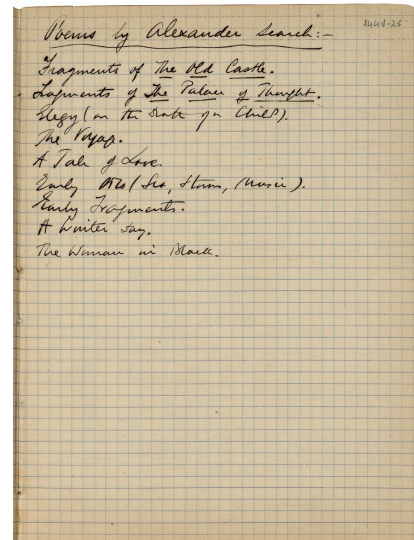 Poems by Alexander Search:-
144V-25
Fragments of The Old Castle.
Fragments of The Palace of Thought.
Elegy (on the Death of a Child).
The Voyage.
A Tale of Love.
Early Bits (Sea, Storm, Music).
Early Fragments.
A Winter Day.
The Woman in Black.